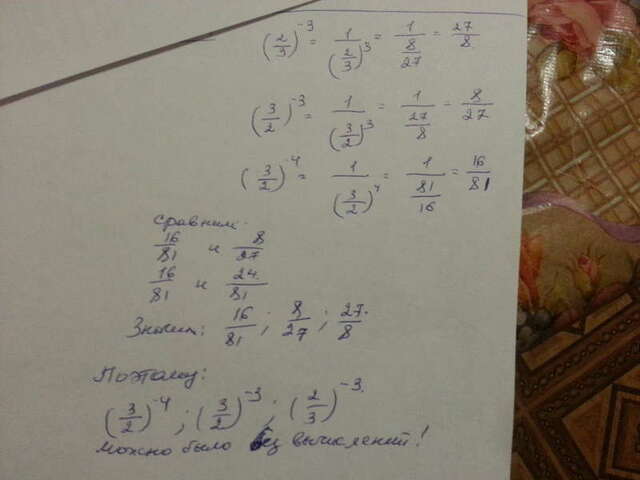 (2/3)^-3 = 1/(2/3)^3 = 1/(8/27) = 27/8
(3/2)^-3 = 1/(3/2)^3 = 1/(27/8) = 8/27
(3/2)^-4 = 1/(3/2)^4 = 1/(81/16) = 16/81
Сравним:
16/81 и 8/27
16/81 и 24/81
Значит: 16/81 ; 8/27 ; 27/8.
Поэтому:
(3/2)^-4 ; (3/2)^-3 ; (2/3)^-3.
можно было без вычислений!